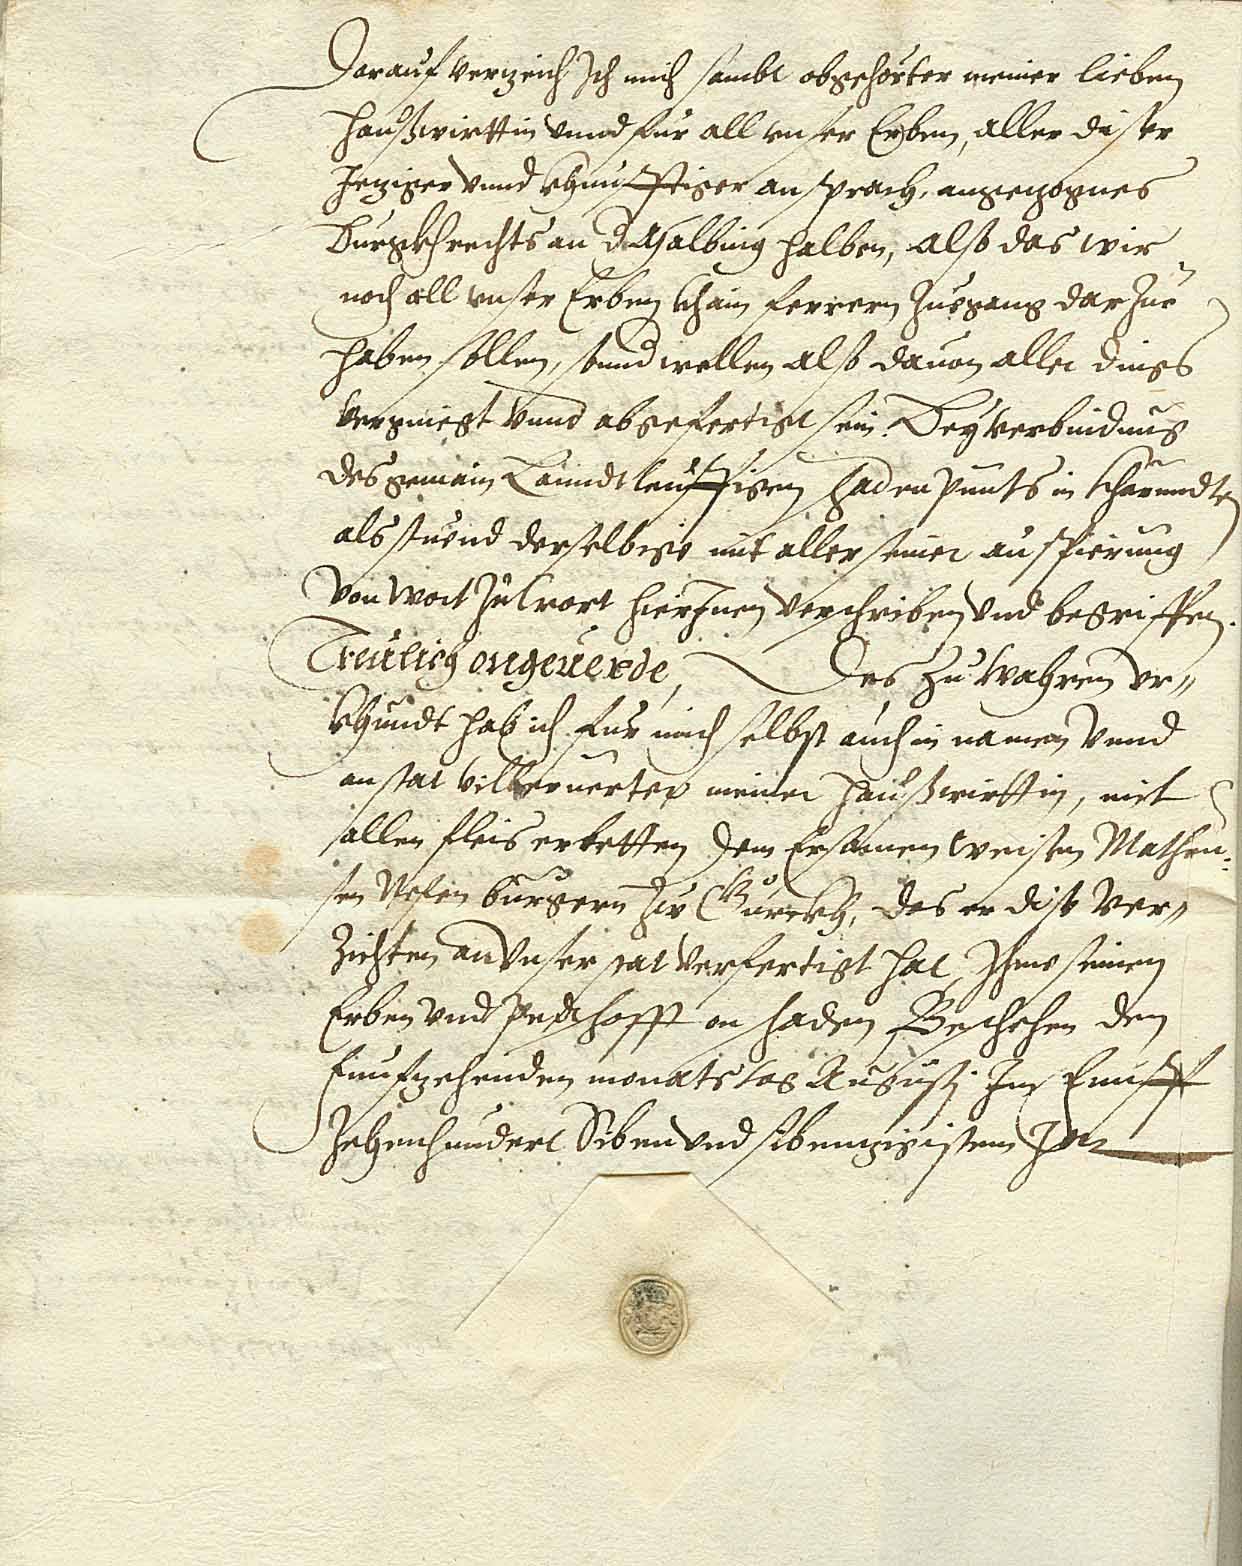 Darauf verzeich Ich mich sambt obgehörter meiner lieben
Haußwirttin vnnd für all vnser Erben, aller diser
Jeziger vnnd khunfftiger ansprach, angezognes
Burgkhrechts an d. halbing halben, also das wir
noch all vnser Erben khain ferrern Zuegang darzue
haben sollen, vnnd wellen also dauon aller dings
vergniegt vnnd abgefertigt sein. Bey verbindung
des gemain Lanndtleuffigen schadenpunts in Kharnndten
als stuend derselbige mit aller seiner ausfierung
von wort zu wort hierInnen verschriben vnd begriffen.
Treulich ongeuerde, Des zu wahren vr=
khundt hab ich für mich selbst auch in namen vnnd
anstat vilberuerter meiner Haußwirttin, mit
allen fleis erbetten dem Ersamen weisen Matheu=
sen burgern zu Gurckh, das er dise ver=
zichten an vnser stat verfertigt hat, Ihme seinen
Erben vnd Petschafft on schaden Beschehen den
funfzehenden monats tag Augusti Im Funff
Zehenhundert Siben vnd sibenzigisten Jar